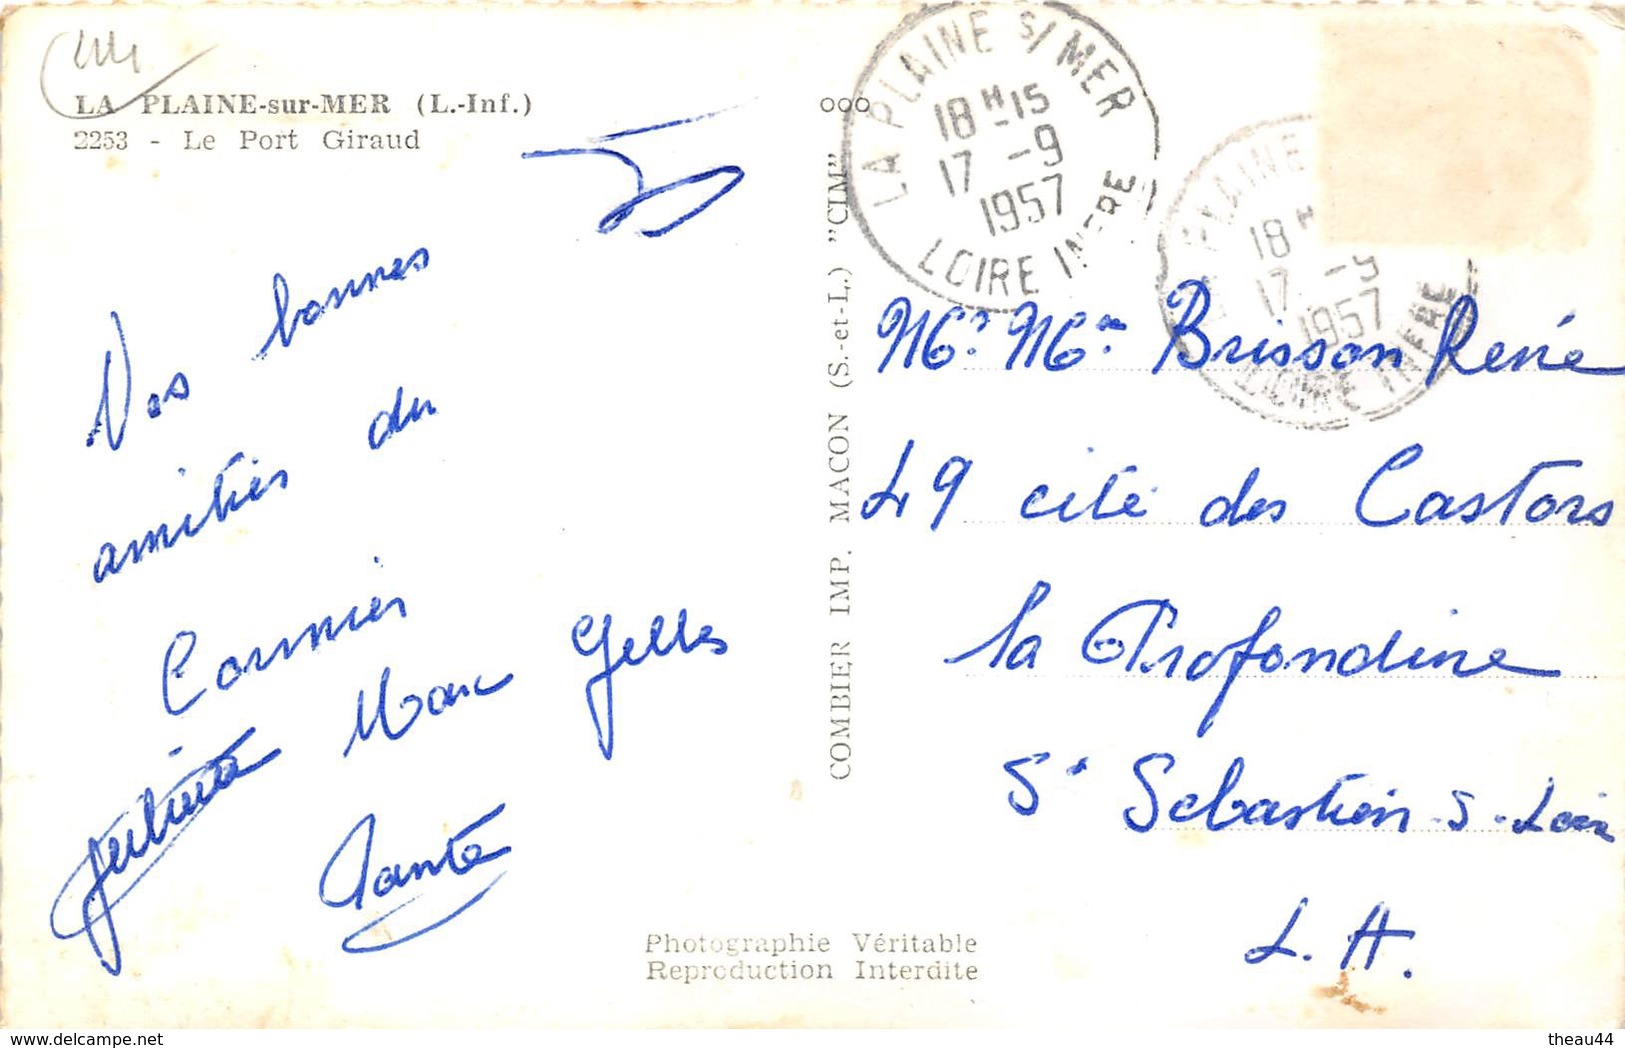 LA PLAINE-sur-MER (L.-Inf.)
2253 - Le Port Giraud
Vos bonnes
amitiés du
Cormier
Marc Gelles
COMBIER IMP. MACON (S.-et-L.) "CIM"
LA PLAINE S/ MER
18 H 15
17 -9
1957
LOIRE INFRE
PLAINE
18 H
17 -9
1957
LOIRE INFRE
Mr Mme Brisson René
49 cité des Castors
la Profondine
St Sébastien-s-Loire
L. A.
Photographie Véritable
Reproduction Interdite
www.delcampe.net
theau44